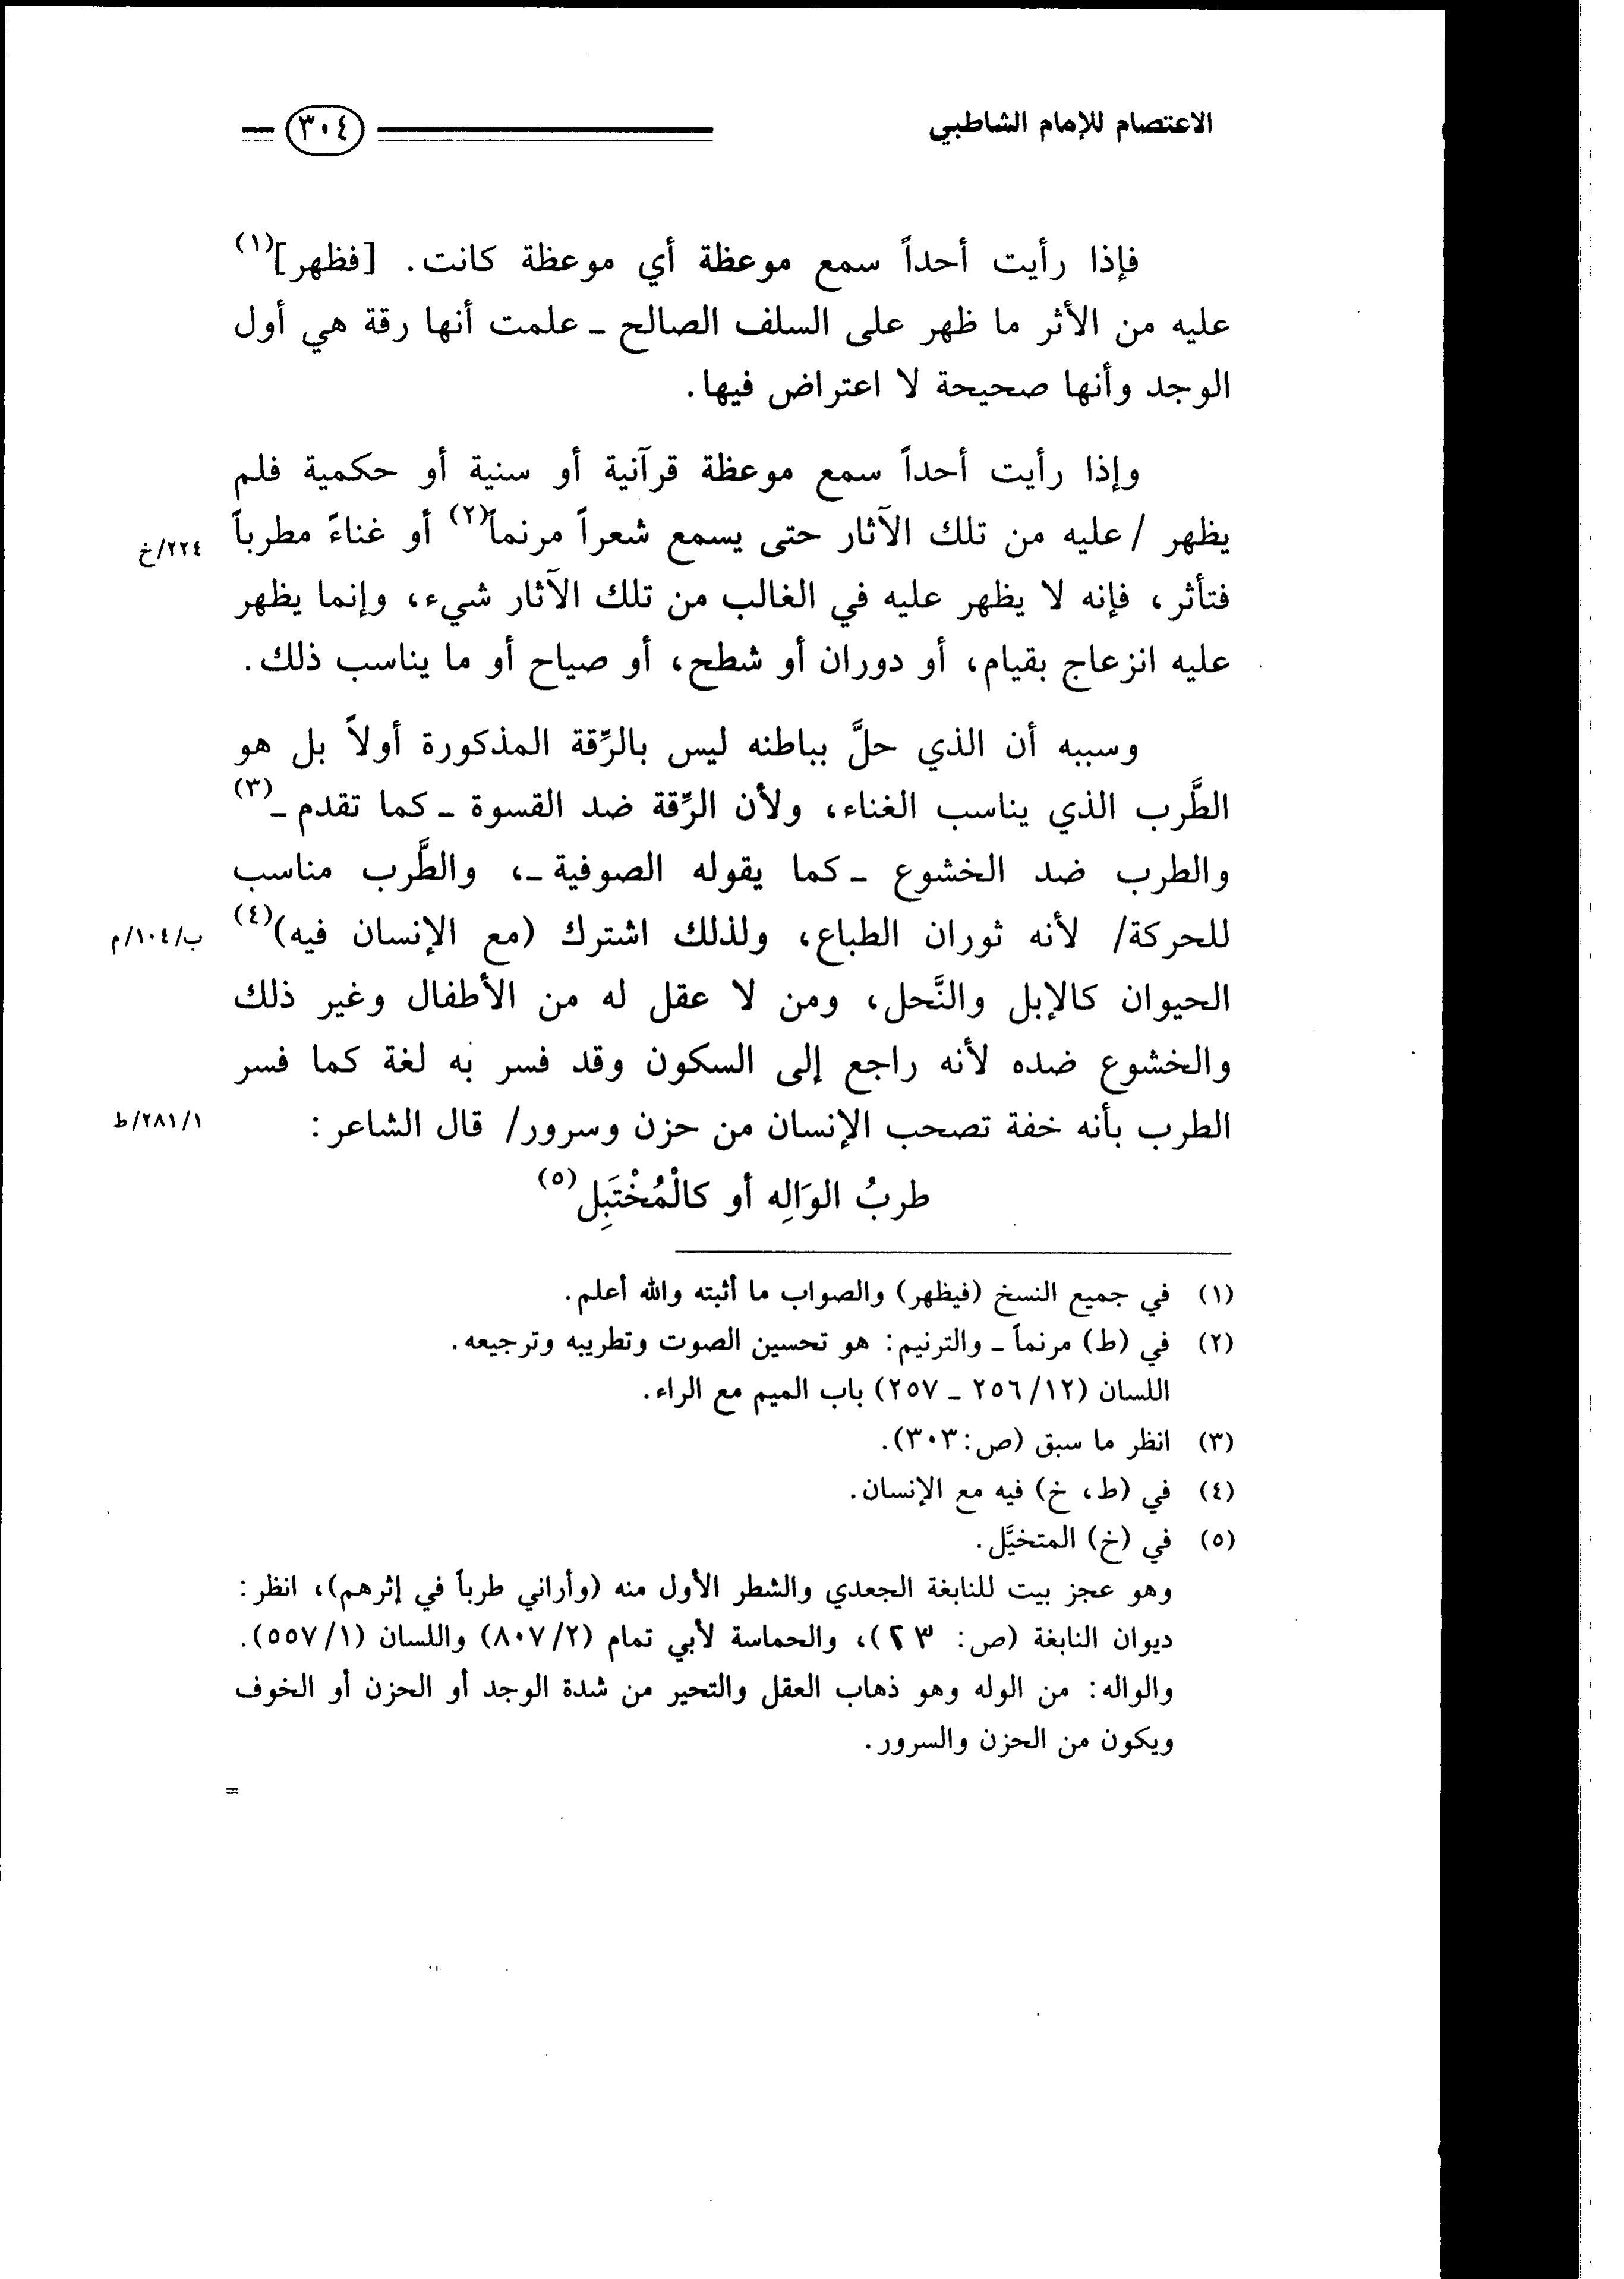 الاعتصام للإمام الشاطبي
٣٠٤
فإذا رأيت أحداً سمع موعظة أي موعظة كانت. [فظهر](١)
عليه من الأثر ما ظهر على السلف الصالح ـ علمت أنها رقة هي أول
الوجد وأنها صحيحة لا اعتراض فيها.
وإذا رأيت أحداً سمع موعظة قرآنية أو سنية أو حكمية فلم
يظهر /عليه من تلك الآثار حتى يسمع شعراً مرنماً(٢) أو غناءً مطرباً
٢٢٤/خ
فتأثر، فإنه لا يظهر عليه في الغالب من تلك الآثار شيء، وإنما يظهر
عليه انزعاج بقيام، أو دوران أو شطح، أو صياح أو ما يناسب ذلك.
وسببه أن الذي حلَّ بباطنه ليس بالرِّقة المذكورة أولاً بل هو
الطَّرب الذي يناسب الغناء، ولأن الرِّقة ضد القسوة ـ كما تقدم ـ(٣)
والطرب ضد الخشوع ـ كما يقوله الصوفية ـ، والطَّرب مناسب
للحركة/ لأنه ثوران الطباع، ولذلك اشترك (مع الإنسان فيه)(٤)
ب/١٠٤/م
الحيوان كالإبل والنَّحل، ومن لا عقل له من الأطفال وغير ذلك
والخشوع ضده لأنه راجع إلى السكون وقد فسر به لغة كما فسر
الطرب بأنه خفة تصحب الإنسان من حزن وسرور/ قال الشاعر:
٢٨١/١/ط
طربُ الوَالِه أو كالْمُخْتَبِل(٥)
(١) في جميع النسخ (فيظهر) والصواب ما أثبته والله أعلم.
(٢) في (ط) مرنماً ـ والترنيم: هو تحسين الصوت وتطريبه وترجيعه.
اللسان (٢٥٦/١٢ ـ ٢٥٧) باب الميم مع الراء.
(٣) انظر ما سبق (ص:٣٠٣).
(٤) في (ط، خ) فيه مع الإنسان.
(٥) في (خ) المتخيَّل.
وهو عجز بيت للنابغة الجعدي والشطر الأول منه (وأراني طرباً في إثرهم)، انظر:
ديوان النابغة (ص: )، والحماسة لأبي تمام (٨٠٧/٢) واللسان (٥٥٧/١).
والواله: من الوله وهو ذهاب العقل والتحير من شدة الوجد أو الحزن أو الخوف
ويكون من الحزن والسرور.
=